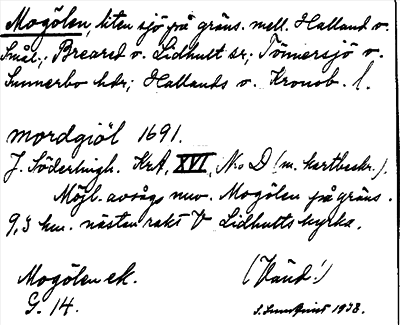 Mogölen, liten sjö på gräns. mell. Halland o.
Smål.; Breared o. Lidhult sr; Tönnersjö o.
Sunnerbo hdr; Hallands o. Kronob. l.
mordgiöl 1691.
J. Söderlingh. KrA, XVI, No D (m. kartbeskr.).
Möjl. avsågs nuv. Mogölen på gräns.
9,5 km. nästan rakt V Lidhults kyrka.
Mogölen ek. (Vänd!)
G. 14. 1938.